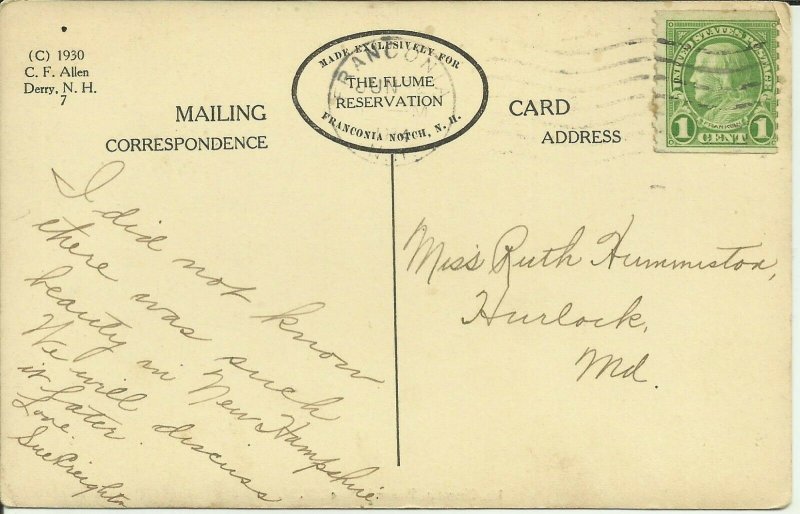 (C) 1930
C. F. Allen
Derry, N. H.
7
MADE EXCLUSIVELY FOR
THE FLUME
RESERVATION
FRANCONIA NOTCH, N. H.
FRANCONIA
JUN
MAILING CARD
CORRESPONDENCE
ADDRESS
UNITED STATES POSTAGE
FRANKLIN
1 CENT 1
I did not know
there was such
beauty in
New Hampshire
We will discuss
it later.
Love
Sue
Miss Ruth Hummiston,
Hurlock,
Md.